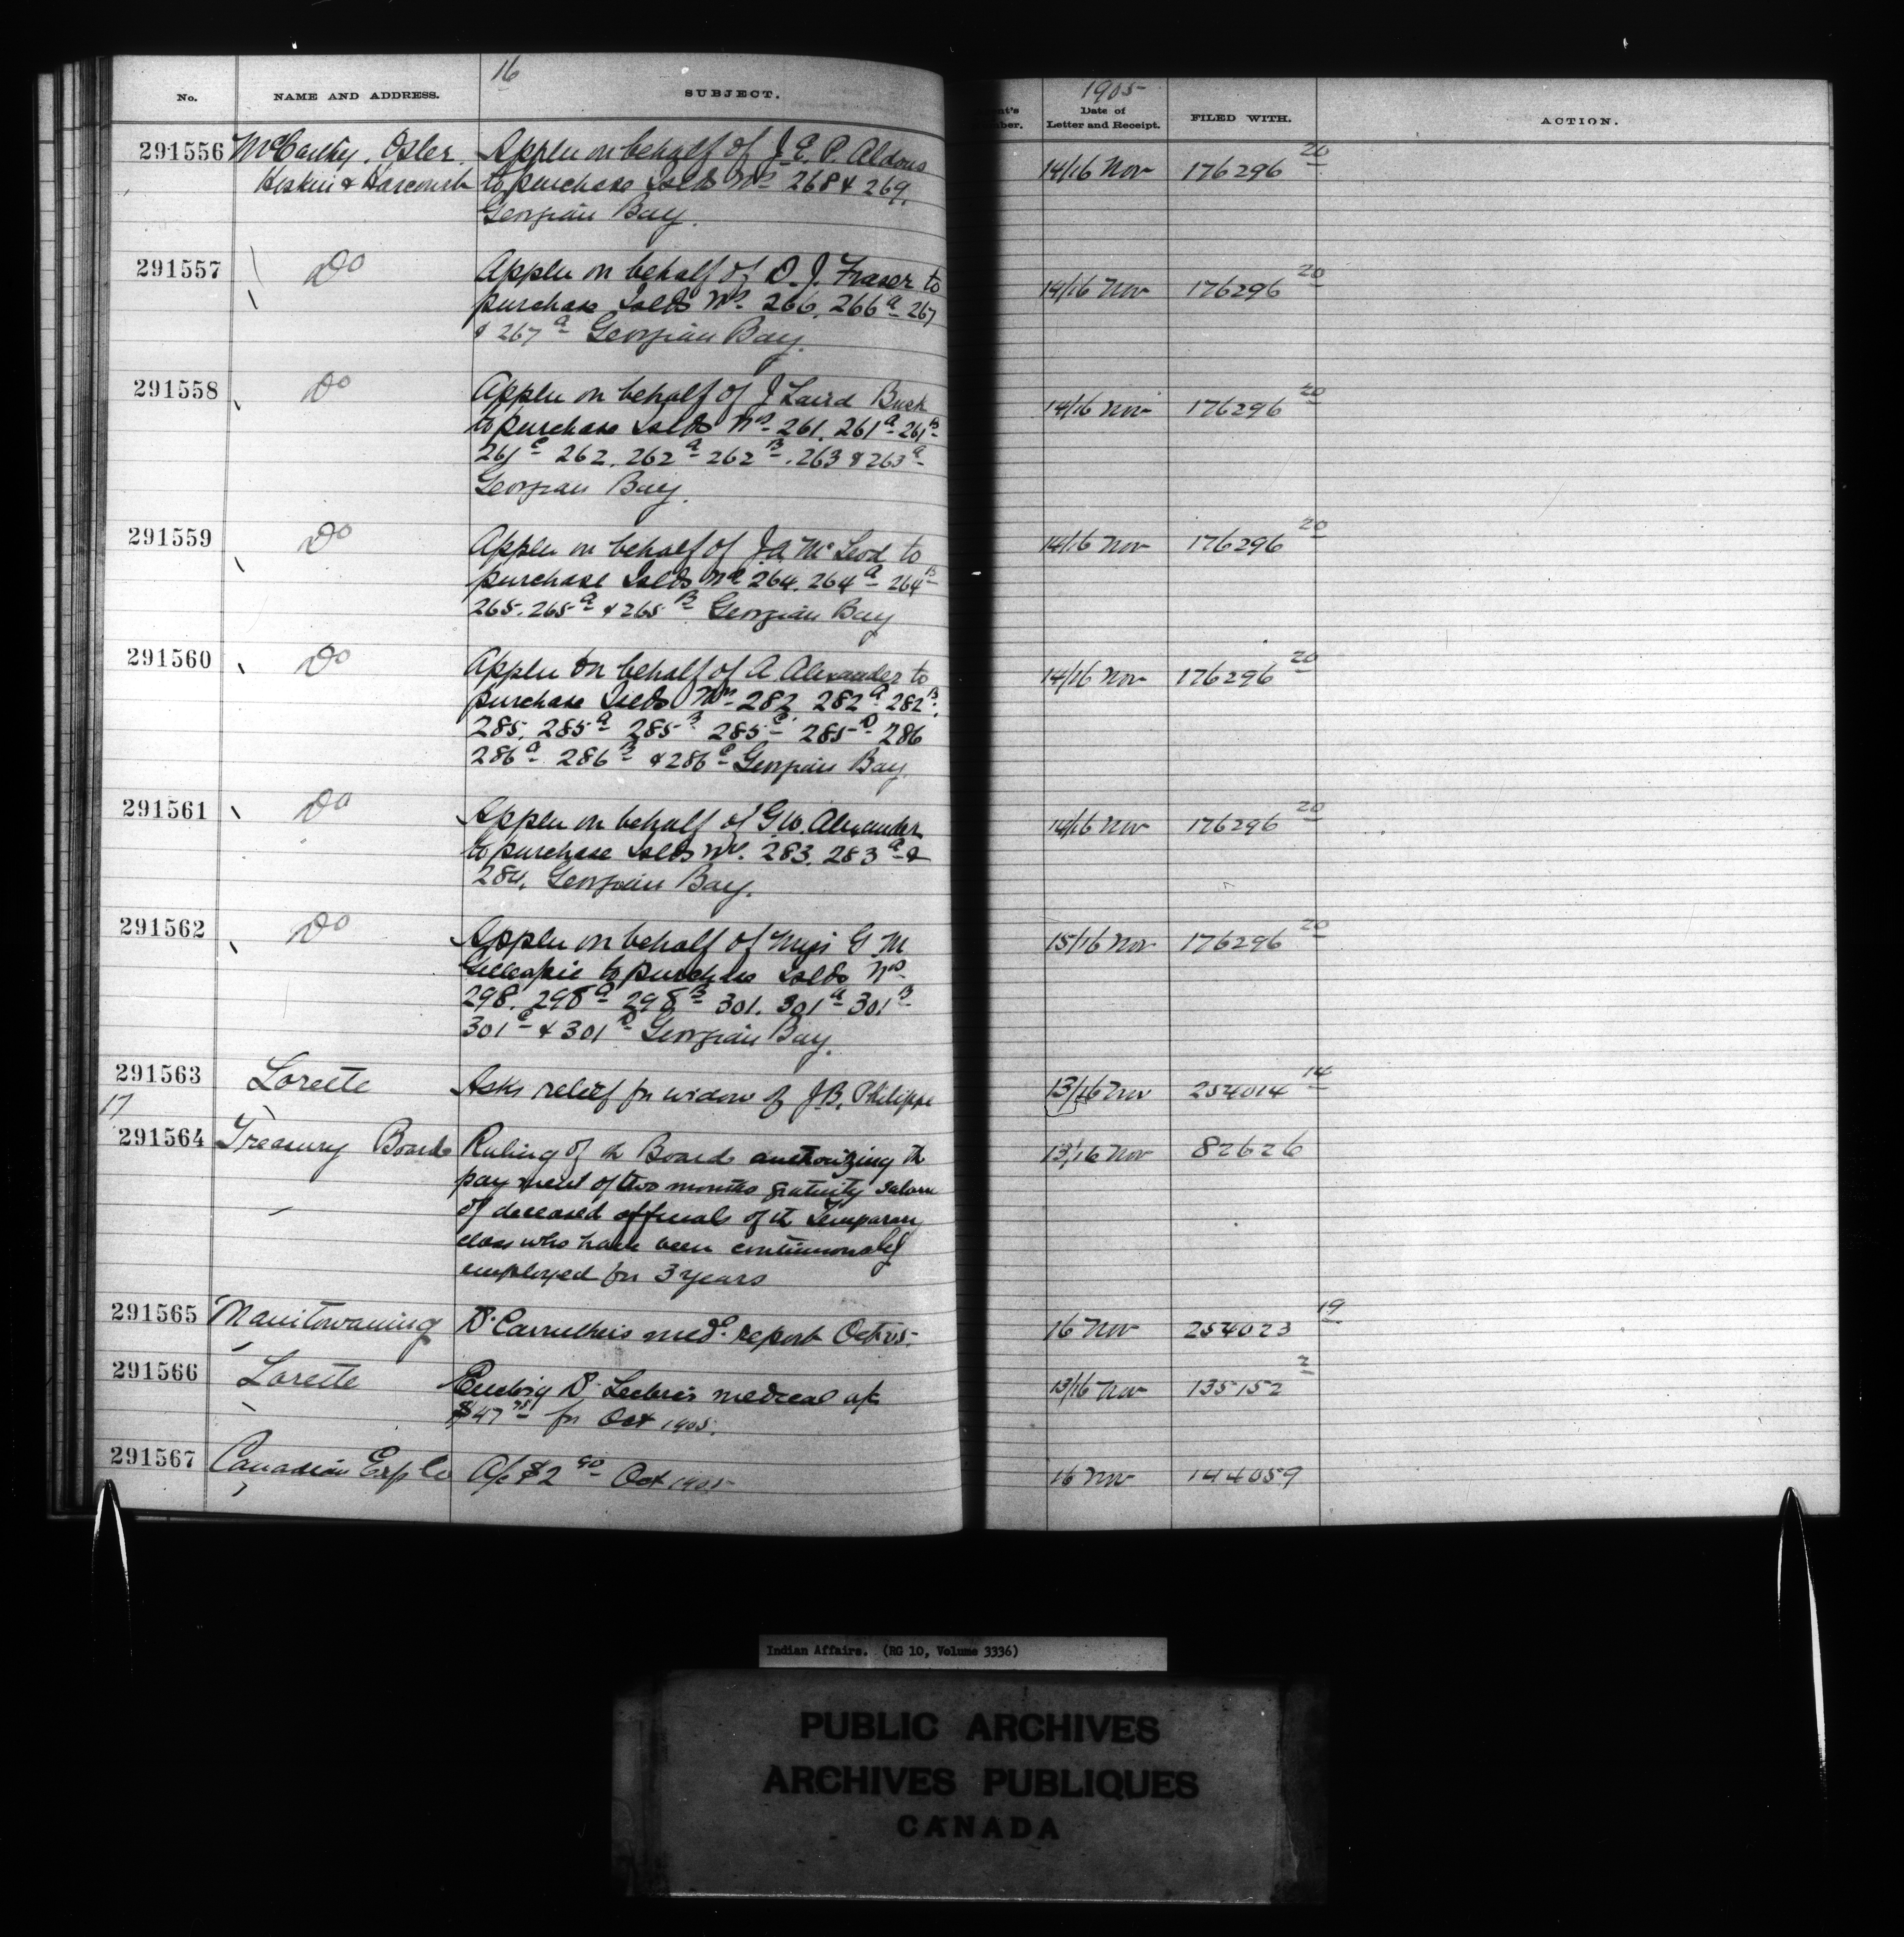 16
No. NAME AND ADDRESS. SUBJECT.
1905
Date of Letter and Receipt. FILED WITH. ACTION.
291556 McCarthy, Osler, Appln on behalf of J. E. P. Aldous 14/16 Nov 176296 20
Hoskin & Harcourt to purchase Islds Nos 268 & 269,
Georgian Bay.
291557 Do Appln on behalf of D. J. Fraser to 14/16 Nov 176296 20
purchase Islds Nos 266, 266A 267
& 267A Georgian Bay.
291558 Do Appln on behalf of J Laird Busk 14/16 Nov 176296 20
to purchase Islds Nos 261, 261A 261B
261C 262, 262A 262B, 263 & 263A
Georgian Bay.
291559 Do Appln on behalf of J A McLeod to 14/16 Nov 176296 20
purchase Islds Nos 264, 264A 264B
265, 265A & 265B Georgian Bay
291560 Do Appln on behalf of A. Alexander to 14/16 Nov 176296 20
purchase Islds Nos 282 282A 282B,
285, 285A 285B 285C 285D 286
286A 286B & 286C Georgian Bay
291561 Do Appln on behalf of G W. Alexander 14/16 Nov 176296 20
to purchase Islds Nos. 283, 283A &
284, Georgian Bay.
291562 Do Appln on behalf of G M 15/16 Nov 176296 20
Gillespie to purchase Islds Nos
298, 298A 298B 301, 301A 301B
301C & 301D Georgian Bay.
291563 Lorette Asks relief for widow of J. B. Philippe 13/16 Nov 254014 14
17
291564 Treasury Board Ruling of th Board authorizing th 13/16 Nov 82626
payment of two months gratuity salary
of deceased officials of th Temporary
class who have been continuously
employed for 3 years
291565 Manitowaning Dr Carruthers medl report Oct 05. 16 Nov 254023 19
291566 Lorette Dr medical a/c 13/16 Nov 135152 2
$47 75 for Oct 1905.
291567 Canadian Exp Co A/c $2 90 Oct 1905 16 Nov 144059
Indian Affairs. (RG 10, Volume 3336)
PUBLIC ARCHIVES
ARCHIVES PUBLIQUES
CANADA